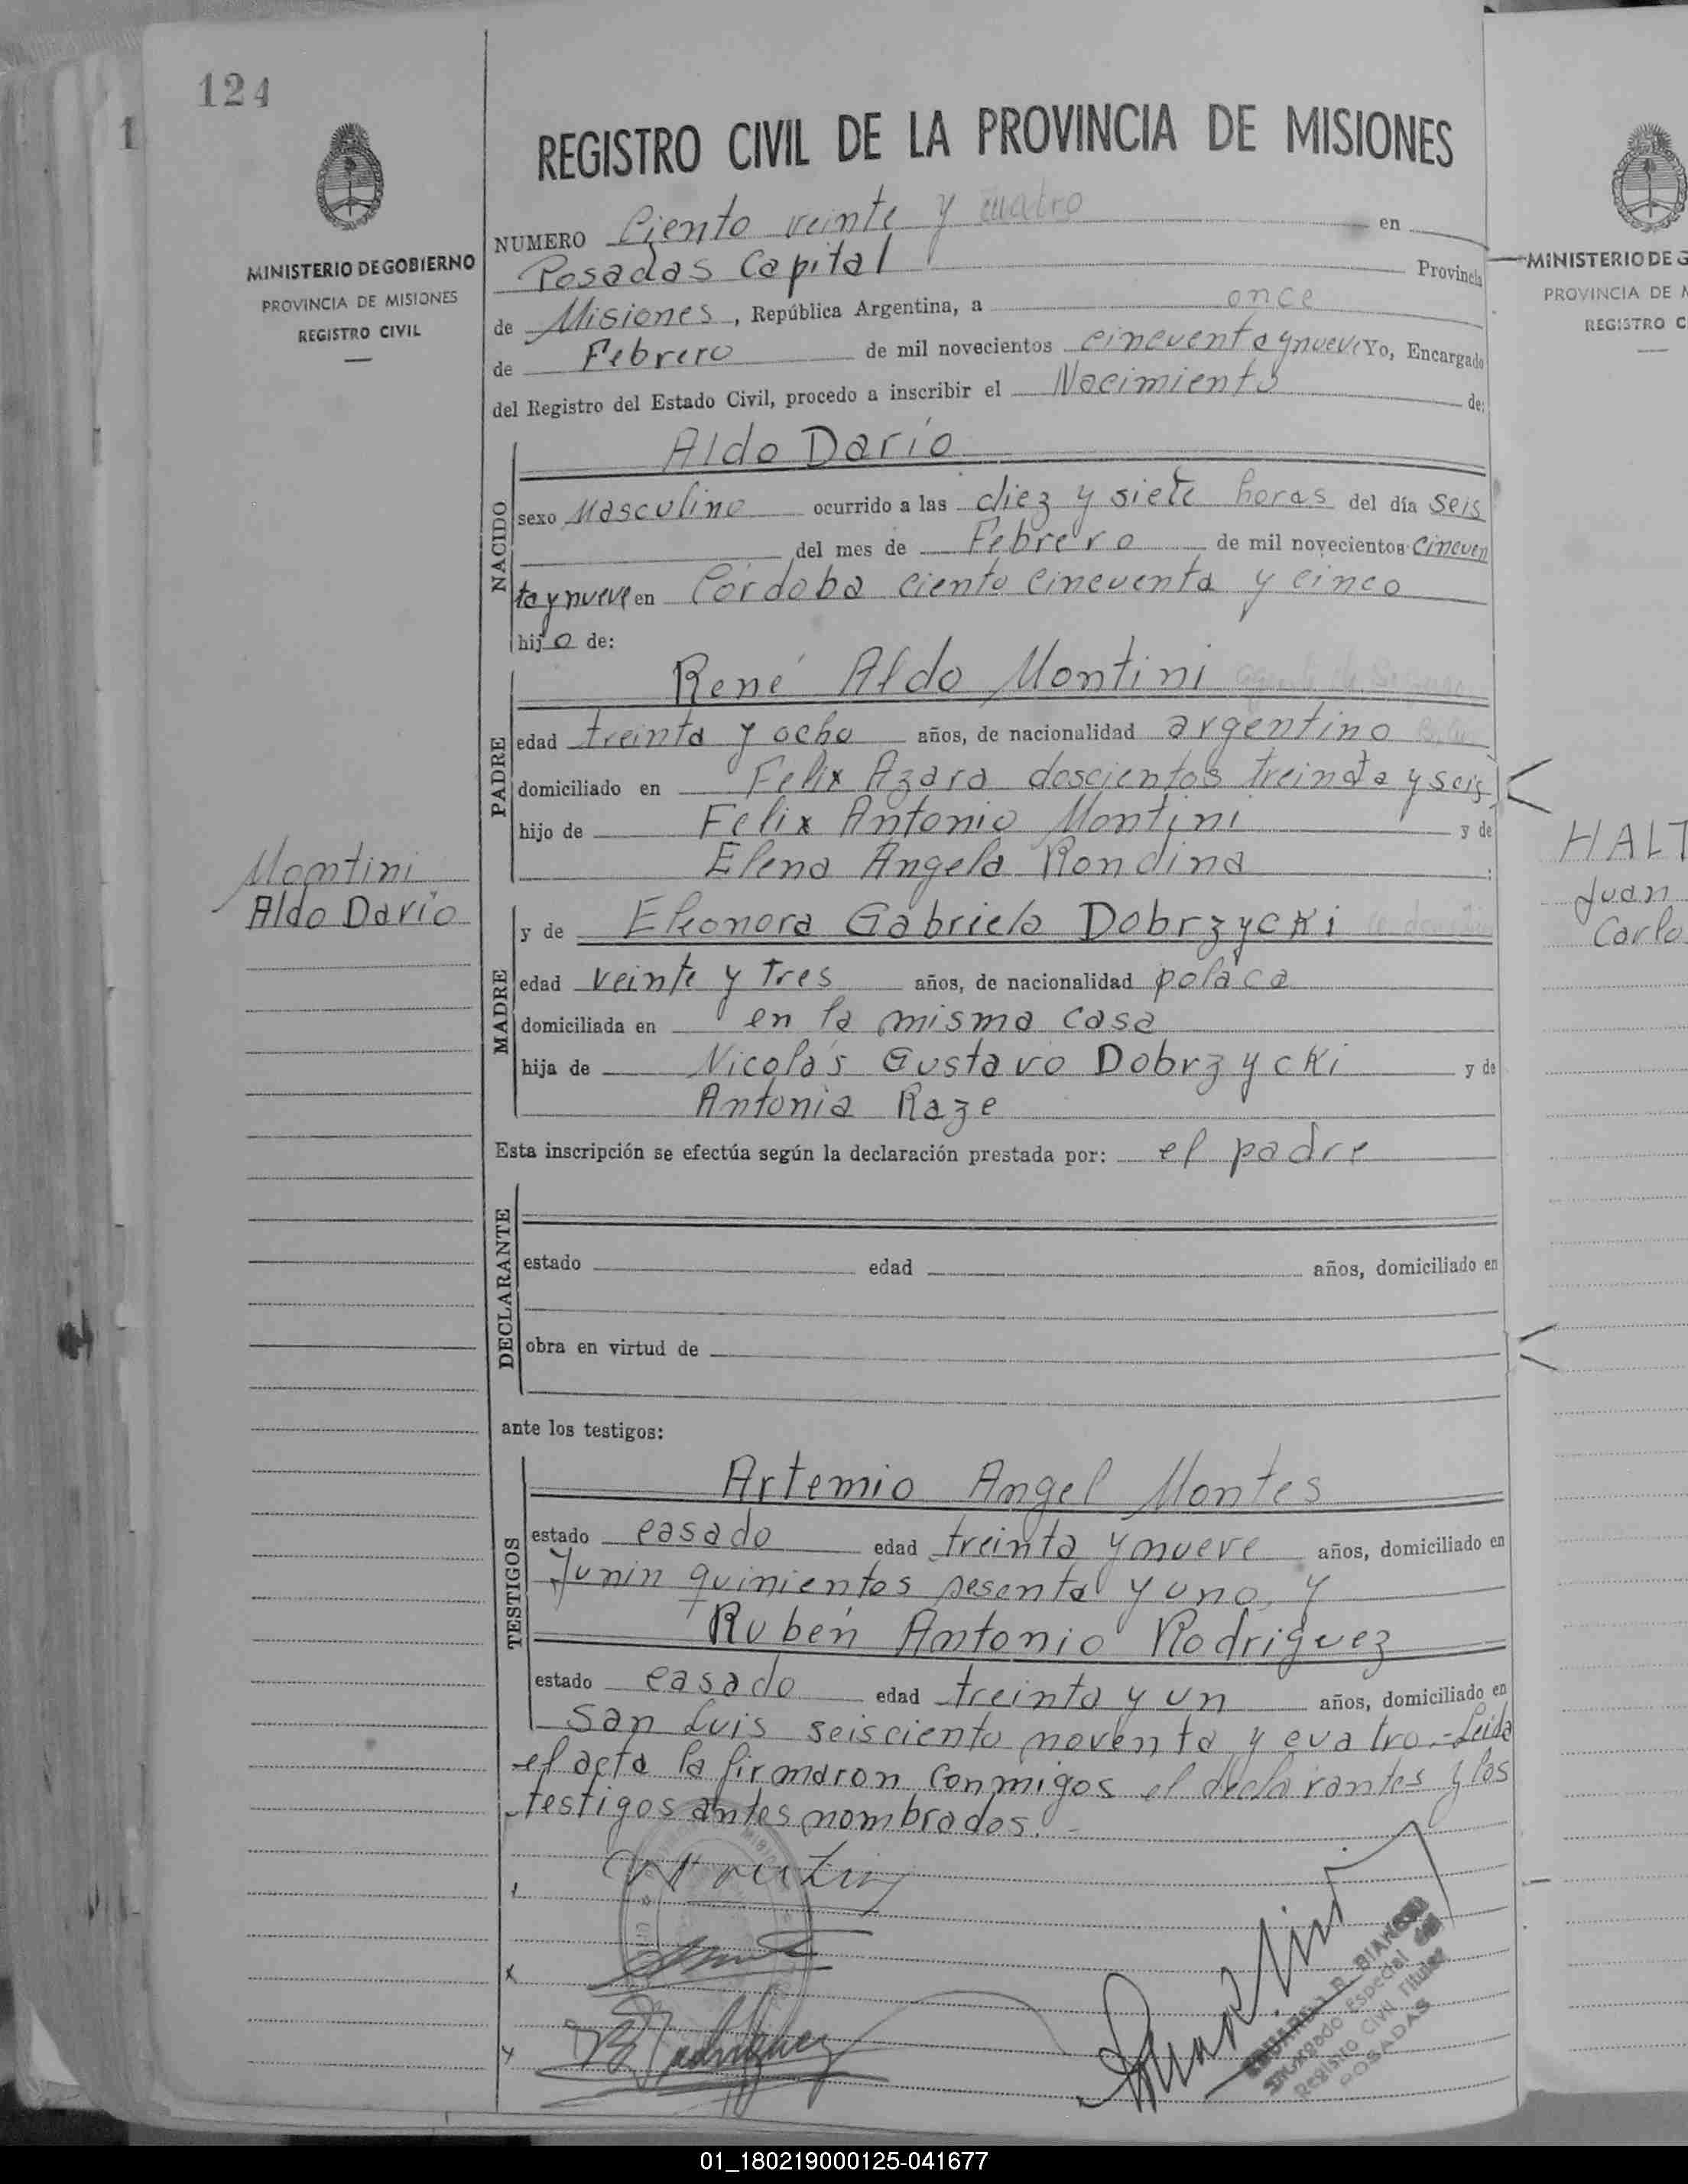 124
1
REGISTRO CIVIL DE LA PROVINCIA DE MISIONES
MINISTERIO DE GOBIERNO
PROVINCIA DE MISIONES
REGISTRO CIVIL
NUMERO Ciento veinte y cuatro en
Posadas Capital Provincia
de Misiones, República Argentina, a once
de Febrero de mil novecientos cincuenta y nueve Yo, Encargado
del Registro del Estado Civil, procedo a inscribir el Nacimiento de:
NACIDO
Aldo Dario
sexo Masculino ocurrido a las diez y siete horas del día seis
del mes de Febrero de mil novecientos cincuen
ta y nueve en Córdoba ciento cincuenta y cinco
hijo de:
PADRE
René Aldo Montini
edad treinta y ocho años, de nacionalidad argentino
domiciliado en Felix Azara doscientos treinta y seis
hijo de Felix Antonio Montini y de
Elena Angela Rondina
Montini
Aldo Dario
MADRE
y de Eleonora Gabriela Dobrzycki
edad veinte y tres años, de nacionalidad polaca
domiciliada en en la misma casa
hija de Nicolás Gustavo Dobrzycki y de
Antonia Raze
Esta inscripción se efectúa según la declaración prestada por: el padre
DECLARANTE
estado edad años, domiciliado en
obra en virtud de
ante los testigos:
TESTIGOS
Artemio Angel Montes
estado casado edad treinta y nueve años, domiciliado en
Junin quinientos sesenta y uno, y
Rubén Antonio Rodriguez
estado casado edad treinta y un años, domiciliado en
San Luis seisciento noventa y cuatro.- Leida
el acta la firmaron conmigos el declarantes y los
testigos antes nombrados.-
Encargado Especial
Registro Civil Titular
POSADAS
MINISTERIO DE G
PROVINCIA DE M
REGISTRO C
HALT
Juan
Carlo
01_180219000125-041677